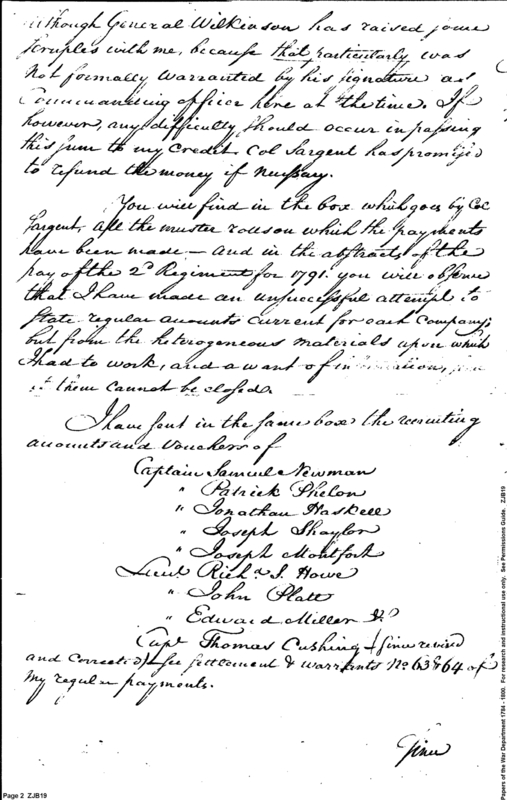 although General Wilkinson has raised some
scruples with me, because that particularly was
not formally warranted by his signature as
Commanding officer here at the time. If
however, any difficulty should occur in passing
this sum to my Credit Col Sargent has promised
to refund the money if nessary.
You will find in the box which goes by Col
Sargent, all the muster rolls on which the payments
have been made — and in the abstracts of the
pay of the 2d Regiment for 1791. you will observe
that I have made an unsuccessful attempt to
state regular accounts current for each Company;
but from the heterogeneous materials upon which
I had to work, and a want of information,
of them cannot be closed.
I have sent in the same box the recruiting
accounts and vouchers of
Captain Samuel Newman
" Patrick Phelon
" Jonathan Haskell
" Joseph Shaylor
" Joseph Montfort
Lieut. Richd. S. Howe
" John Platt
" Edward Miller
Capt Thomas Cushing (since revised
and corrected) see settlement & warrants No 63 & 64 of
my regular payments.
Since
Page 2 ZJB19
Papers of the War Department 1784 - 1800. For research and instructional use only. See Permissions Guide. ZJB19